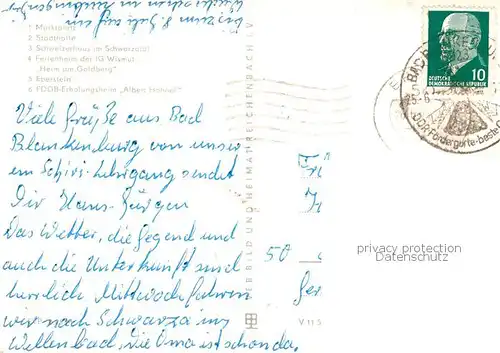 bis zum 8. Juli auf ein
1 Marktplatz
2 Stadthalle
3 Schweizerhaus im Schwarzatal
4 Ferienheim der IG Wismut
„Heim am Goldberg“
5 Eberstein
6 FDGB-Erholungsheim „Albert Hähnel“
Viele Grüße aus Bad
Blankenburg von unser
em Schiri-Lehrgang sendet
Dir Hans-Jürgen
Das Wetter, die Gegend und
auch die Unterkunft sind
herrlich Mittwoch fahren
wir nach Schwarza ins
Wellenbad, die Oma ist schon da.
BILD UND HEIMAT REICHENBACH I. V.
V 11 5
50
Ger
10
DEUTSCHE
DEMOKRATISCHE REPUBLIK
BAD
privacy protection
Datenschutz